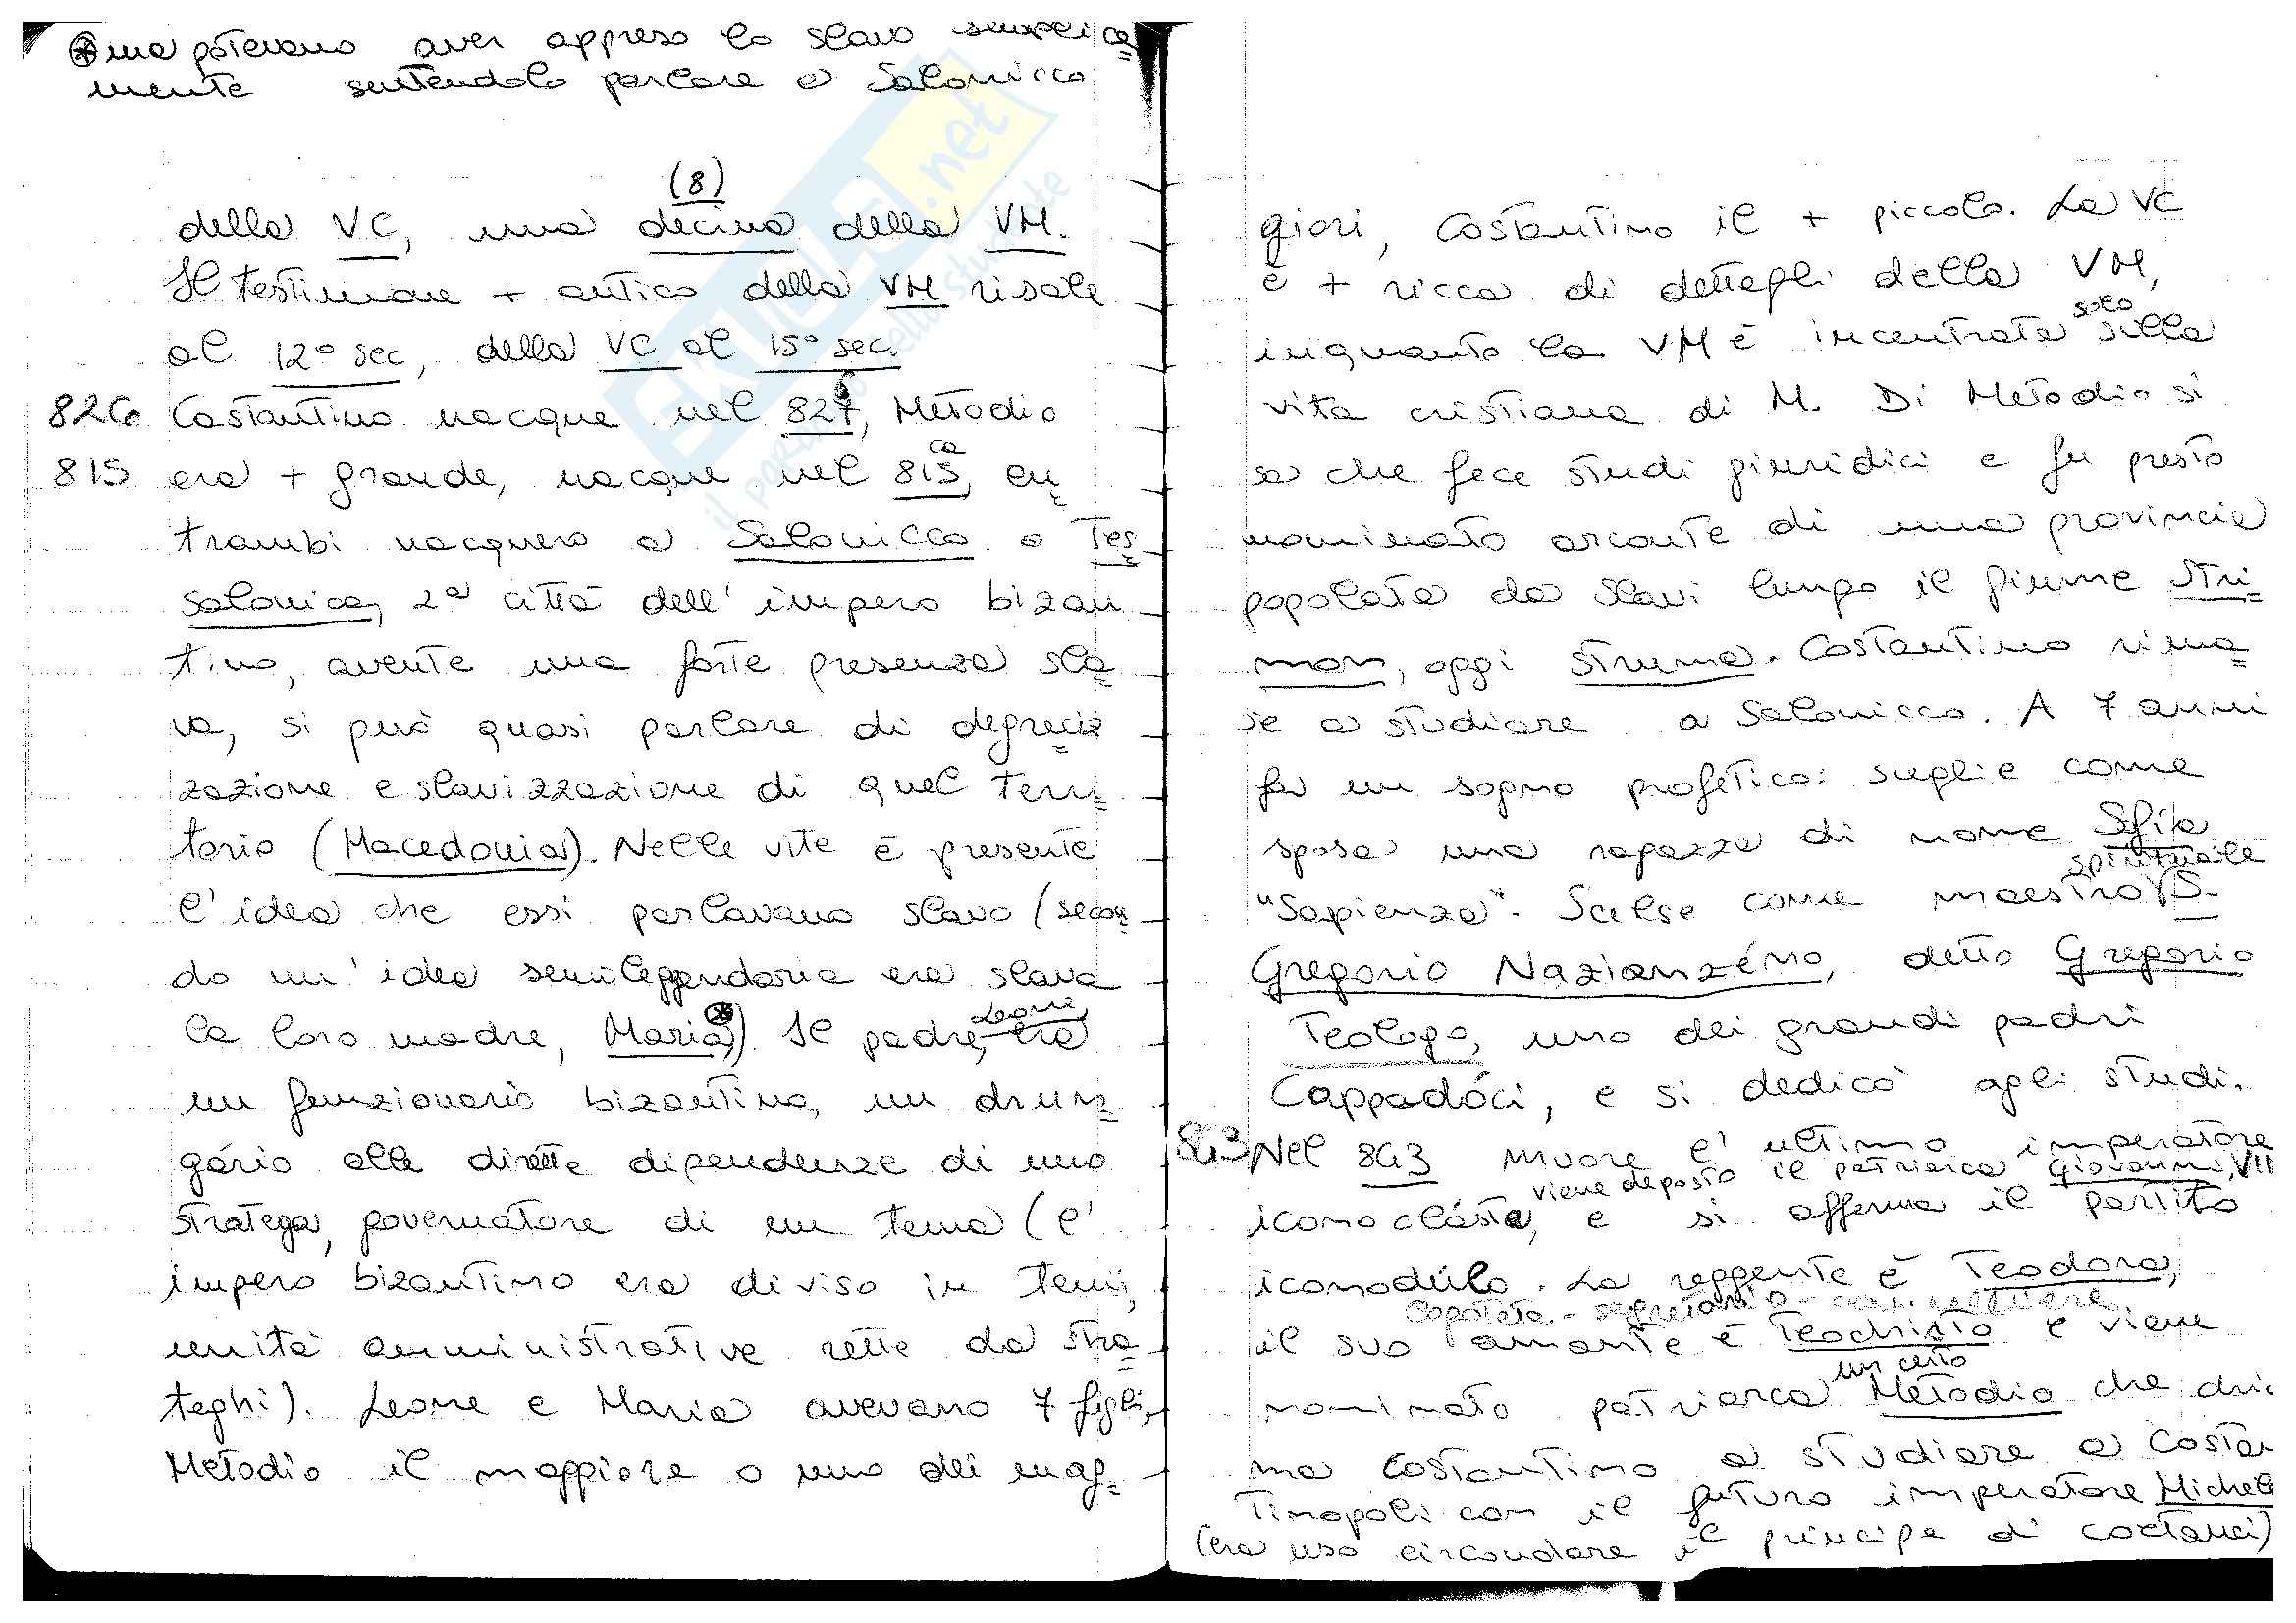 ⊛ ma potevano aver appreso lo slavo semplica=
mente sentendolo parlare a Salonicco
(8)
della VC, una decina della VM.
Il testimone + antico della VM risale
al 12° sec, della VC al 15° sec.
826 Costantino nacque nel 827, Metodio
6
ca
815 era + grande, nacque nel 815, en=
trambi nacquero a Salonicco o Tes=
salonica, 2a città dell'impero bizan
tino, avente una forte presenza sla=
va, si può quasi parlare di degreciz=
zazione e slavizzazione di quel terri=
torio (Macedonia). Nelle vite è presente
l'idea che essi parlavano slavo (secon=
do un'idea semileggendaria era slava
Leone,
la loro madre, Maria⊛,). Il padre, era
un funzionario bizantino, un drun=
gário alle dirette dipendenze di uno
stratega, governatore di un tema (l'
impero bizantino era diviso in temi,
unità amministrative rette da stra=
teghi). Leone e Maria avevano 7 figli,
Metodio il maggiore o uno dei mag=
giori, Costantino il + piccolo. La VC
è + ricca di dettagli della VM,
solo
inquanto la VM è incentrata sulla
vita cristiana di M. Di Metodio si
sa che fece studi giuridici e fu presto
nominato arconte di una provincia
popolata da slavi lungo il fiume Stri=
mon, oggi Struma. Costantino rima=
se a studiare a Salonicco. A 7 anni
fa un sogno profetico: sceglie come
sposa una ragazza di nome Sofia
spirituale
"Sapienza". Scelse come maestro S.
Gregorio Nazianzéno, detto Gregorio
Teologo, uno dei grandi padri
Cappadóci, e si dedicò agli studi.
843 Nel 843 muore l'ultimo imperatore
viene deposto il patriarca Giovanni VII
iconoclásta, e si afferma il partito
iconodúlo. La reggente è Teodora,
Logoteta - segretario - cancelliere
il suo amante è Teochisto e viene
un certo
nominato patriarca Metodio che chi=
ma Costantino a studiare a Costan
tinopoli con il futuro imperatore Michele
(era uso circondare il principe di coetanei)